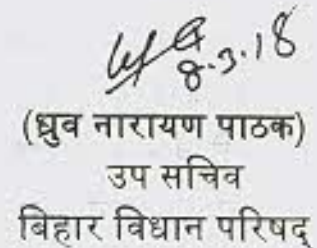 8.3.18
(ध्रुव नारायण पाठक)
उप सचिव
बिहार विधान परिषद्